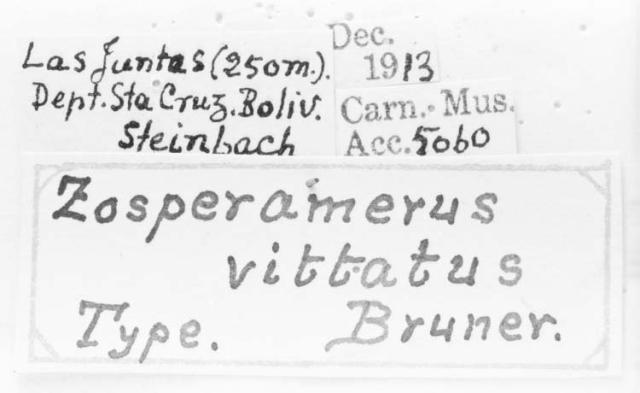 Las Juntas (250m.).
Dept. Sta Cruz. Boliv.
Steinbach
Dec.
1913
Carn. Mus.
Acc. 5060
Zosperamerus
vittatus
Type. Bruner.